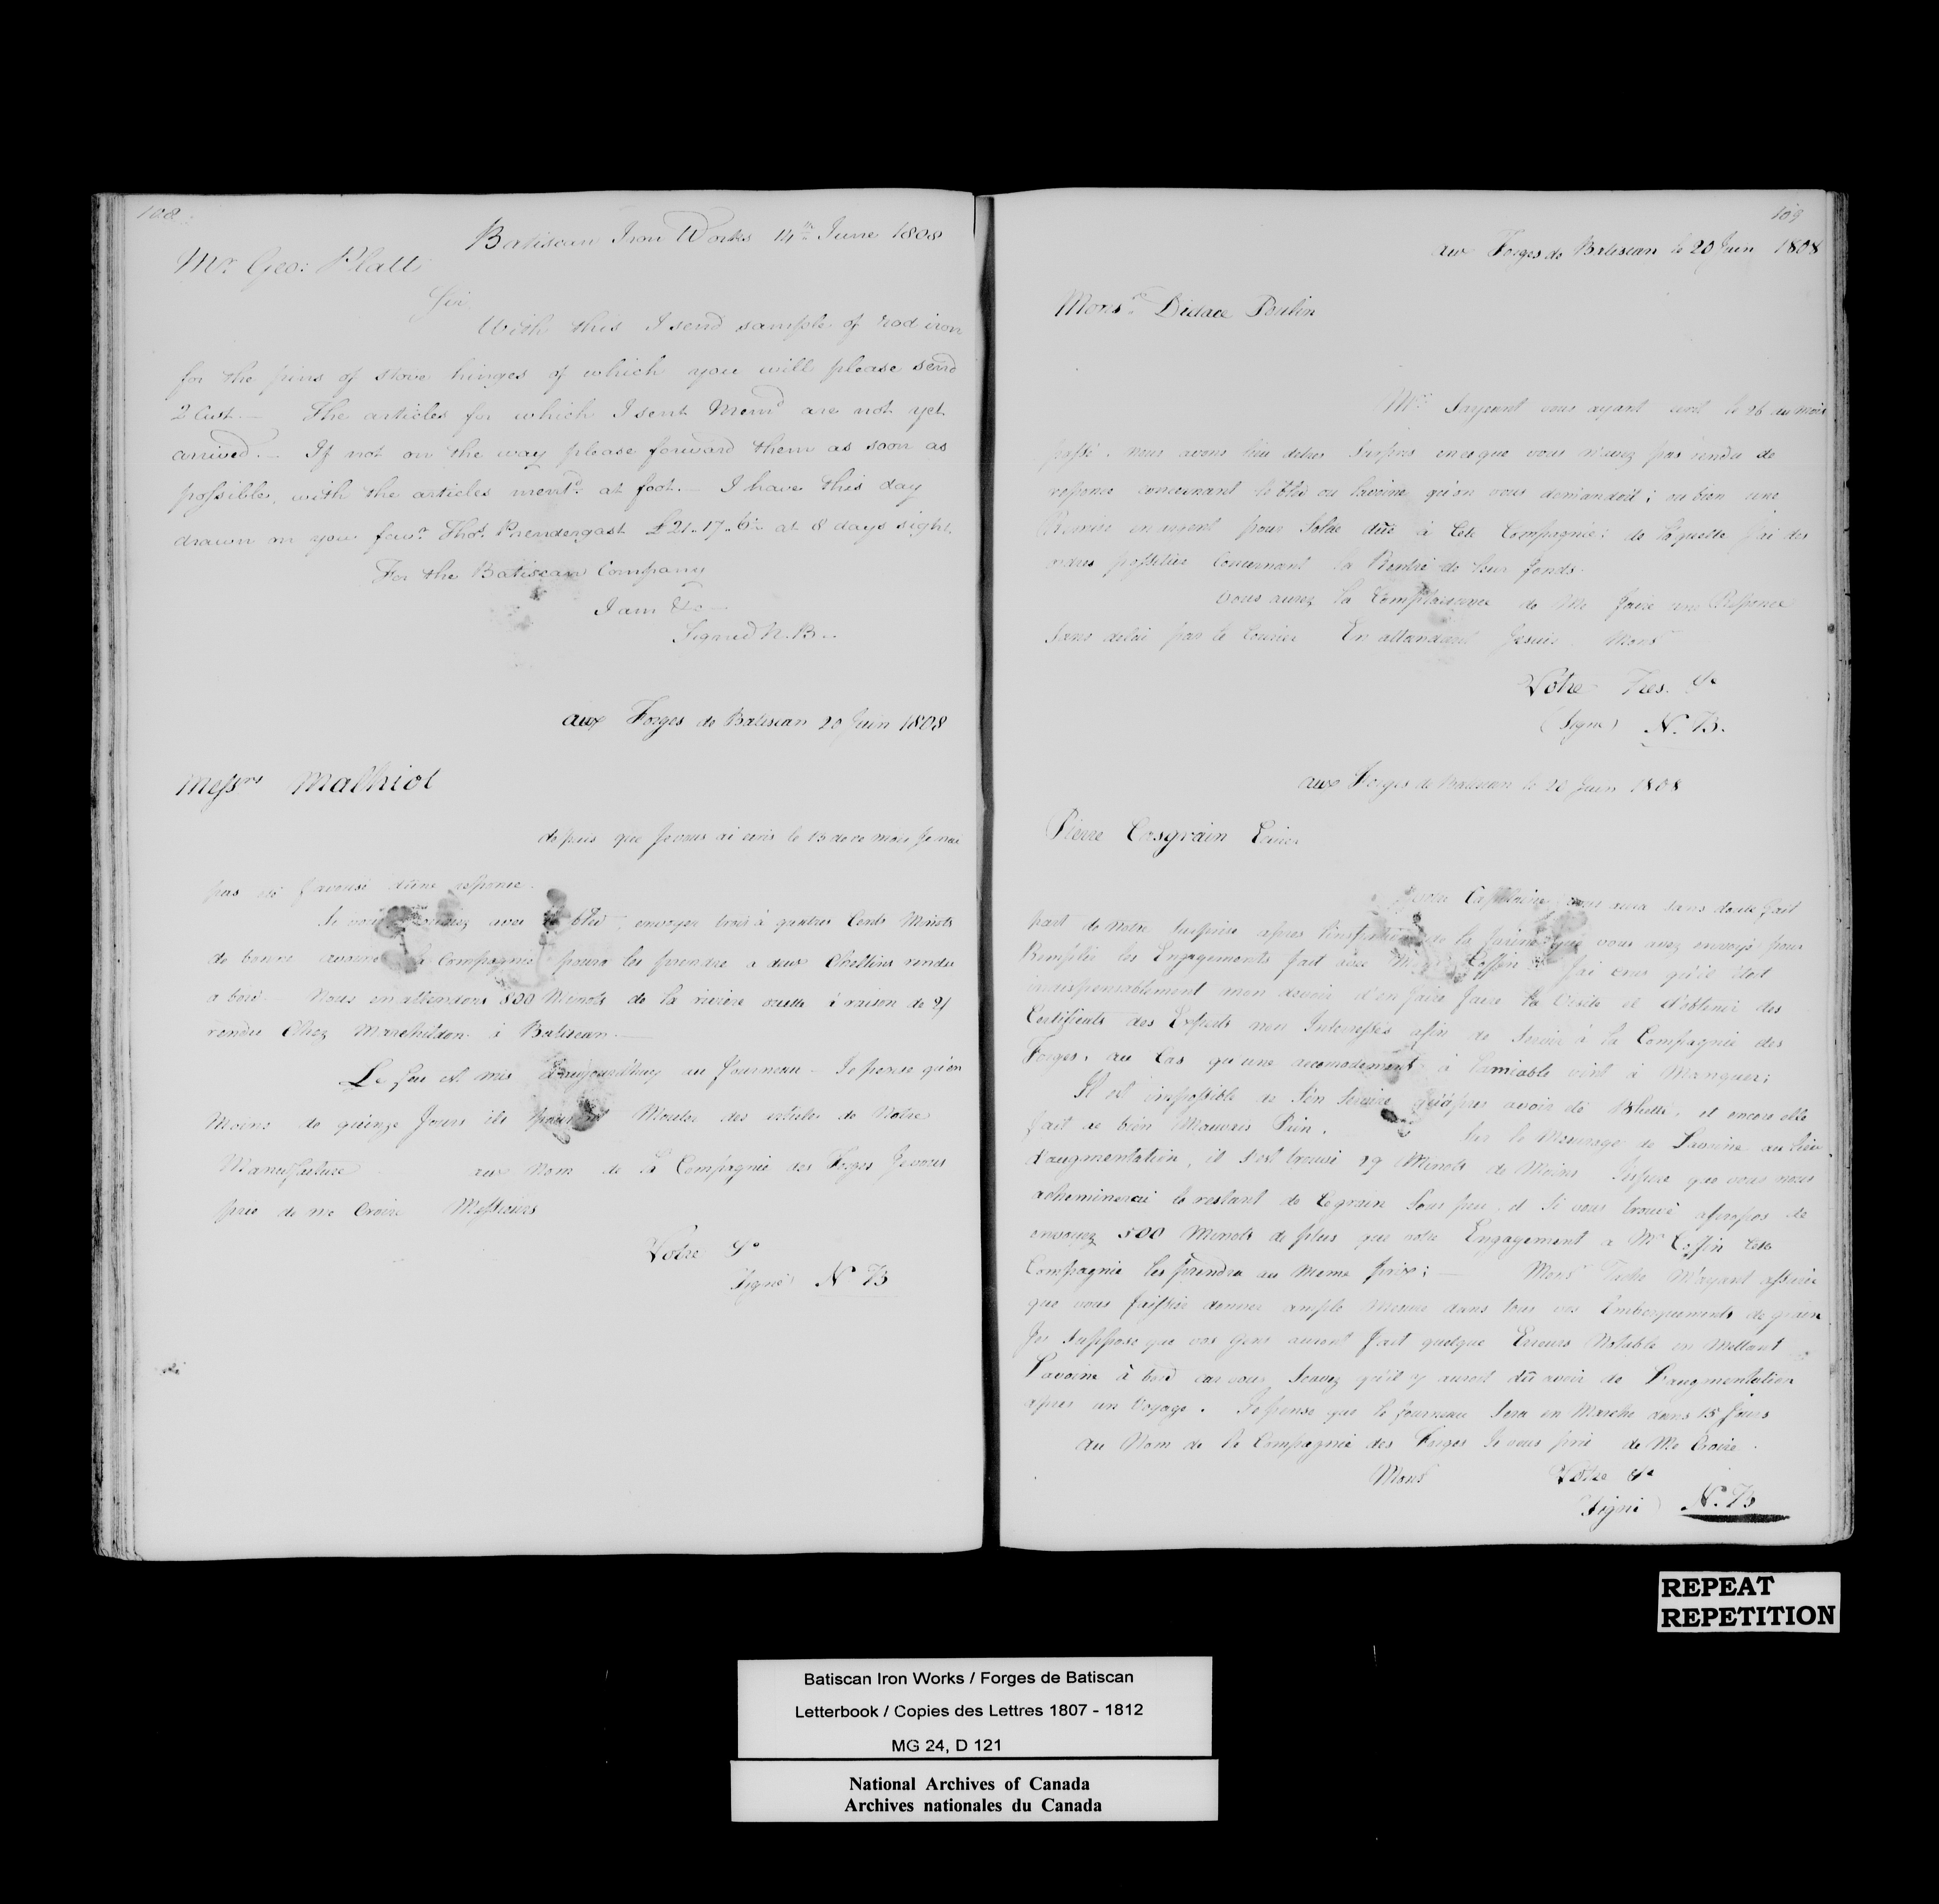 108
Batiscan Iron Works 14th June 1808
Mr Geo: Platt
Sir
With this I send sample of rod iron
for the pins of stove hinges of which you will please send
2 Cwt. — The articles for which I sent Memd are not yet
arrived. — If not on the way please forward them as soon as
possible, with the articles mentd at foot. — I have this day
drawn on you favr Thos Prendergast £21..17..6 at 8 days sight.
For the Batiscan Company
I am &c —
Signed N. B. —
aux Forges de Batiscan 20 Juin 1808
Messrs Malhiot
depuis que Je vous ai ecris le 13 de ce mois Je n'ai
pas été favorisé d'une reponse.
Si vous avec le bled, envoyer trois à quatres Cents Minots
de bonne avoine la Compagnie poura les prendre a deux Chellins rendu
a bord. Nous en attendons 800 Minots de la riviere ouelle à raison de 2/
rendu Chez Marchildon à Batiscan. —
Le feu et mis d'aujourdhuy au fourneau — Je pense qu'en
Moins de quinze Jours ils pouront Mouler des articles de Notre
Manufacture aux Nom de la Compagnie des Forges Je vous
prie de me Croire Messieurs
Votre &c
Signé) N B
109
aux Forges de Batiscan le 20 Juin 1808
Monsr Didace Poulin
Mr Sargeant vous ayant ecrit le 26 du mois
passé, nous avons lieu detres Surpris en ce que vous n'avez pas rendu de
reponse concernant le bled ou lavoine qu'on vous demandoit; ou bien une
Remise en argent pour Solde due à Cete Compagnie: de laquelle J'ai des
ordres possitive Concernant la Rentré de leur fonds.
Vous aurez la Complaisance de Me faire une Reponce
Sans delai par le Courier En attendant Je suis Mons
Votre Tres. &c
(Signé) N. B.
aux Forges de Batiscan le 20 Juin 1808
Pierre Casgrain Ecuier
Capitaine vous aura sans doute fait
part de notre Surprise apres l'inspection de la farine que vous avez envoyé pour
Remplir les Engagements fait avec Mr Coffin J'ai crus qu'il étoit
indispensablement mon devoir d'en faire faire la Visite et d'obtenir des
Certificats des Experts non Interessés afin de Servir à la Compagnie des
Forges, au Cas qu'une accomodement à Lamiable vint à Manquer;
Il est impossible de S'en Servire qu'apres avoir été Bluté, et encore elle
fait de bien Mauvais Pain. Sur le Mesurage de Lavoine au lieu
d'augmentation, il s'est trouvé 29 Minots de Moins J'espere que vous nous
achemineroi le restant de Ce grain Sous peu, et Si vous trouvé apropos de
envoyez 500 Minots de plus que notre Engagement a Mr Coffin Cete
Compagnie les prendra au Meme prix; — Monsr Taché M'ayant assuré
que vous faissiez donner ample Mesure dans tous vos Embarquements de grain
Je Suppose que vos Gens auront fait quelque Erreurs Notable en Mettant
Lavoine à bord car vous Savez qu'il y auroit dû avoir de Laugmentation
apres un Voyage. Je pense que le fourneau Sera en Marche dans 15 Jours
Au Nom de la Compagnie des Forges Je vous prie de Me Croire.
Mons Votre &c
Signé) N. B
REPEAT
REPETITION
Batiscan Iron Works / Forges de Batiscan
Letterbook / Copies des Lettres 1807 - 1812
MG 24, D 121
National Archives of Canada
Archives nationales du Canada